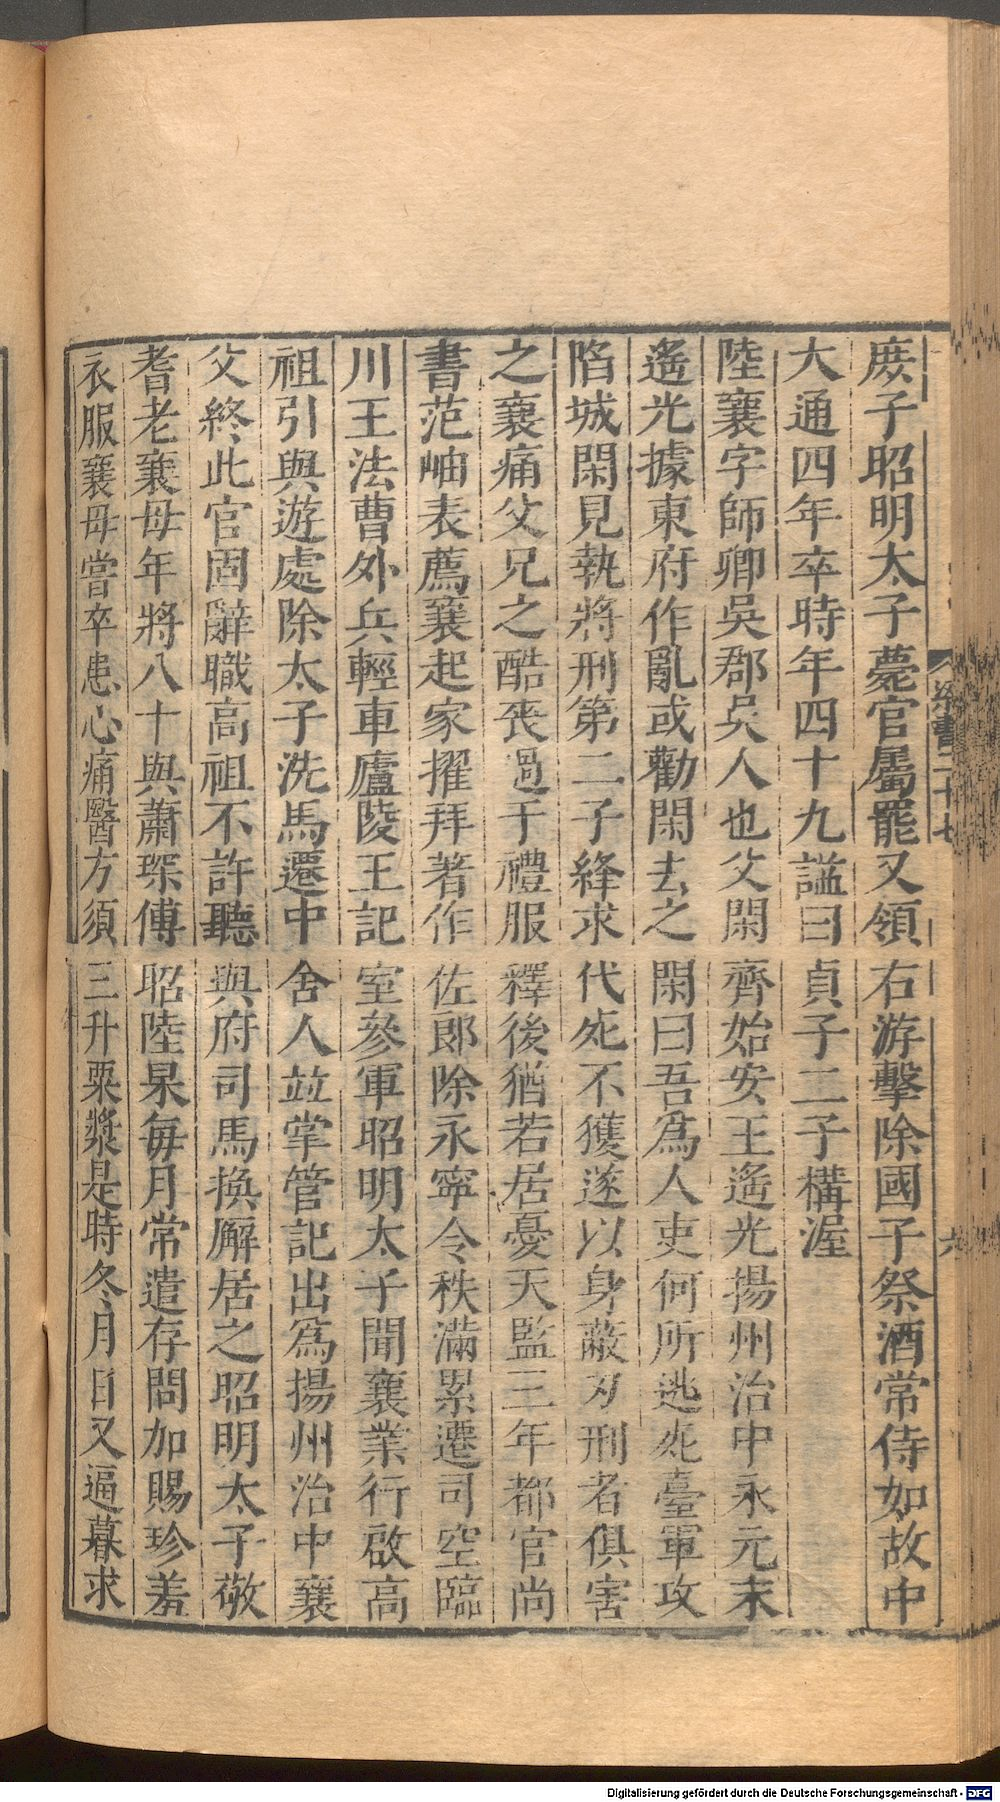 庶子昭明太子薨官屬罷又領右游擊除國子祭酒常侍如故中
大通四年卒時年四十九諡曰貞子二子構渥
陸襄字師卿吳郡吳人也父閑齊始安王遙光揚州治中永元末
遙光據東府作亂或勸閑去之閑曰吾爲人吏何所逃死臺軍攻
陷城閑見執將刑第二子絳求代死不獲遂以身蔽刃刑者俱害
之襄痛父兄之酷喪過于禮服釋後猶若居憂天監三年都官尚
書范岫表薦襄起家擢拜著作佐郎除永寧令秩滿累遷司空臨
川王法曹外兵輕車廬陵王記室參軍昭明太子聞襄業行啟高
祖引與遊處除太子洗馬遷中舍人並掌管記出爲揚州治中襄
父終此官固辭職高祖不許聽與府司馬換廨居之昭明太子敬
耆老襄母年將八十與蕭琛傅昭陸杲每月常遣存問加賜珍羞
衣服襄母嘗卒患心痛醫方須三升粟漿是時冬月日又逼暮求
梁書二十七
六
Digitalisierung gefördert durch die Deutsche Forschungsgemeinschaft - DFG